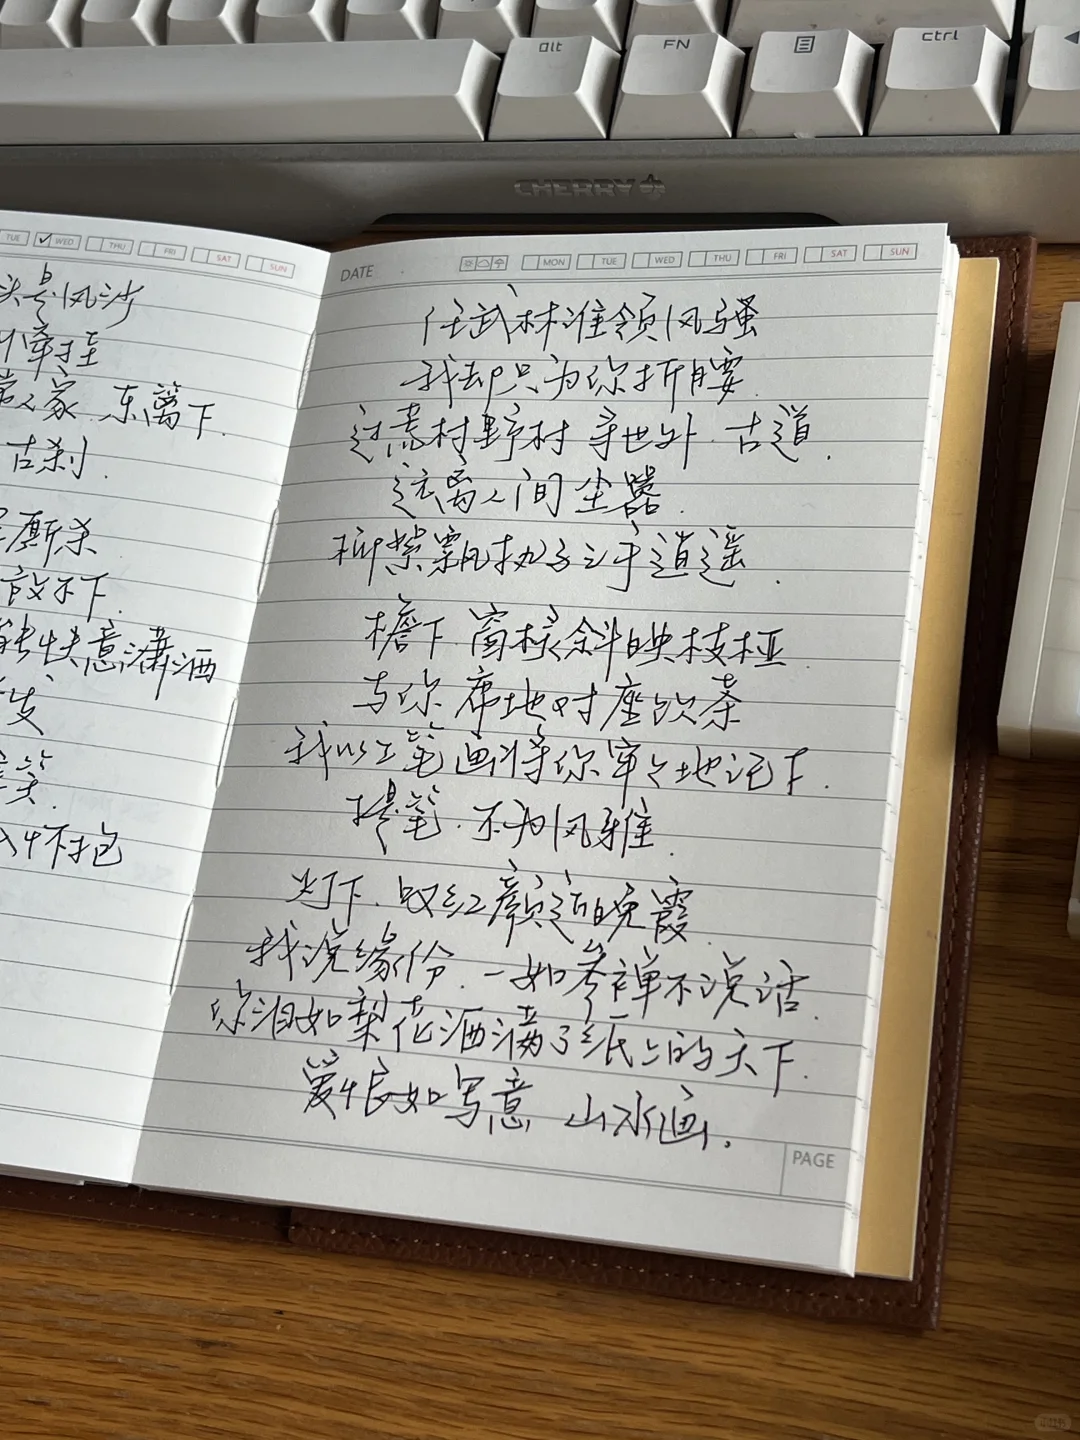 alt
FN
ctrl
CHERRY
TUE ✓ WED THU FRI SAT SUN
头是风沙
牵挂
人家 东篱下.
古刹.
厮杀
放不下.
能快意潇洒
发
笑.
怀抱
DATE MON TUE WED THU FRI SAT SUN
任武林谁领风骚
我却只为你折腰.
过荒村野村 寻世外.古道.
远离人间尘嚣.
柳絮飘执子之手逍遥.
檐下 窗棂斜映枝桠.
与你 席地对座饮茶
我以工笔画将你牢々地记下.
提笔.不为风雅.
灯下.叹红颜近晚霞.
我说缘份.一如参禅不说话.
你泪如梨花洒满了纸上的天下.
爱恨如写意 山水画.
PAGE